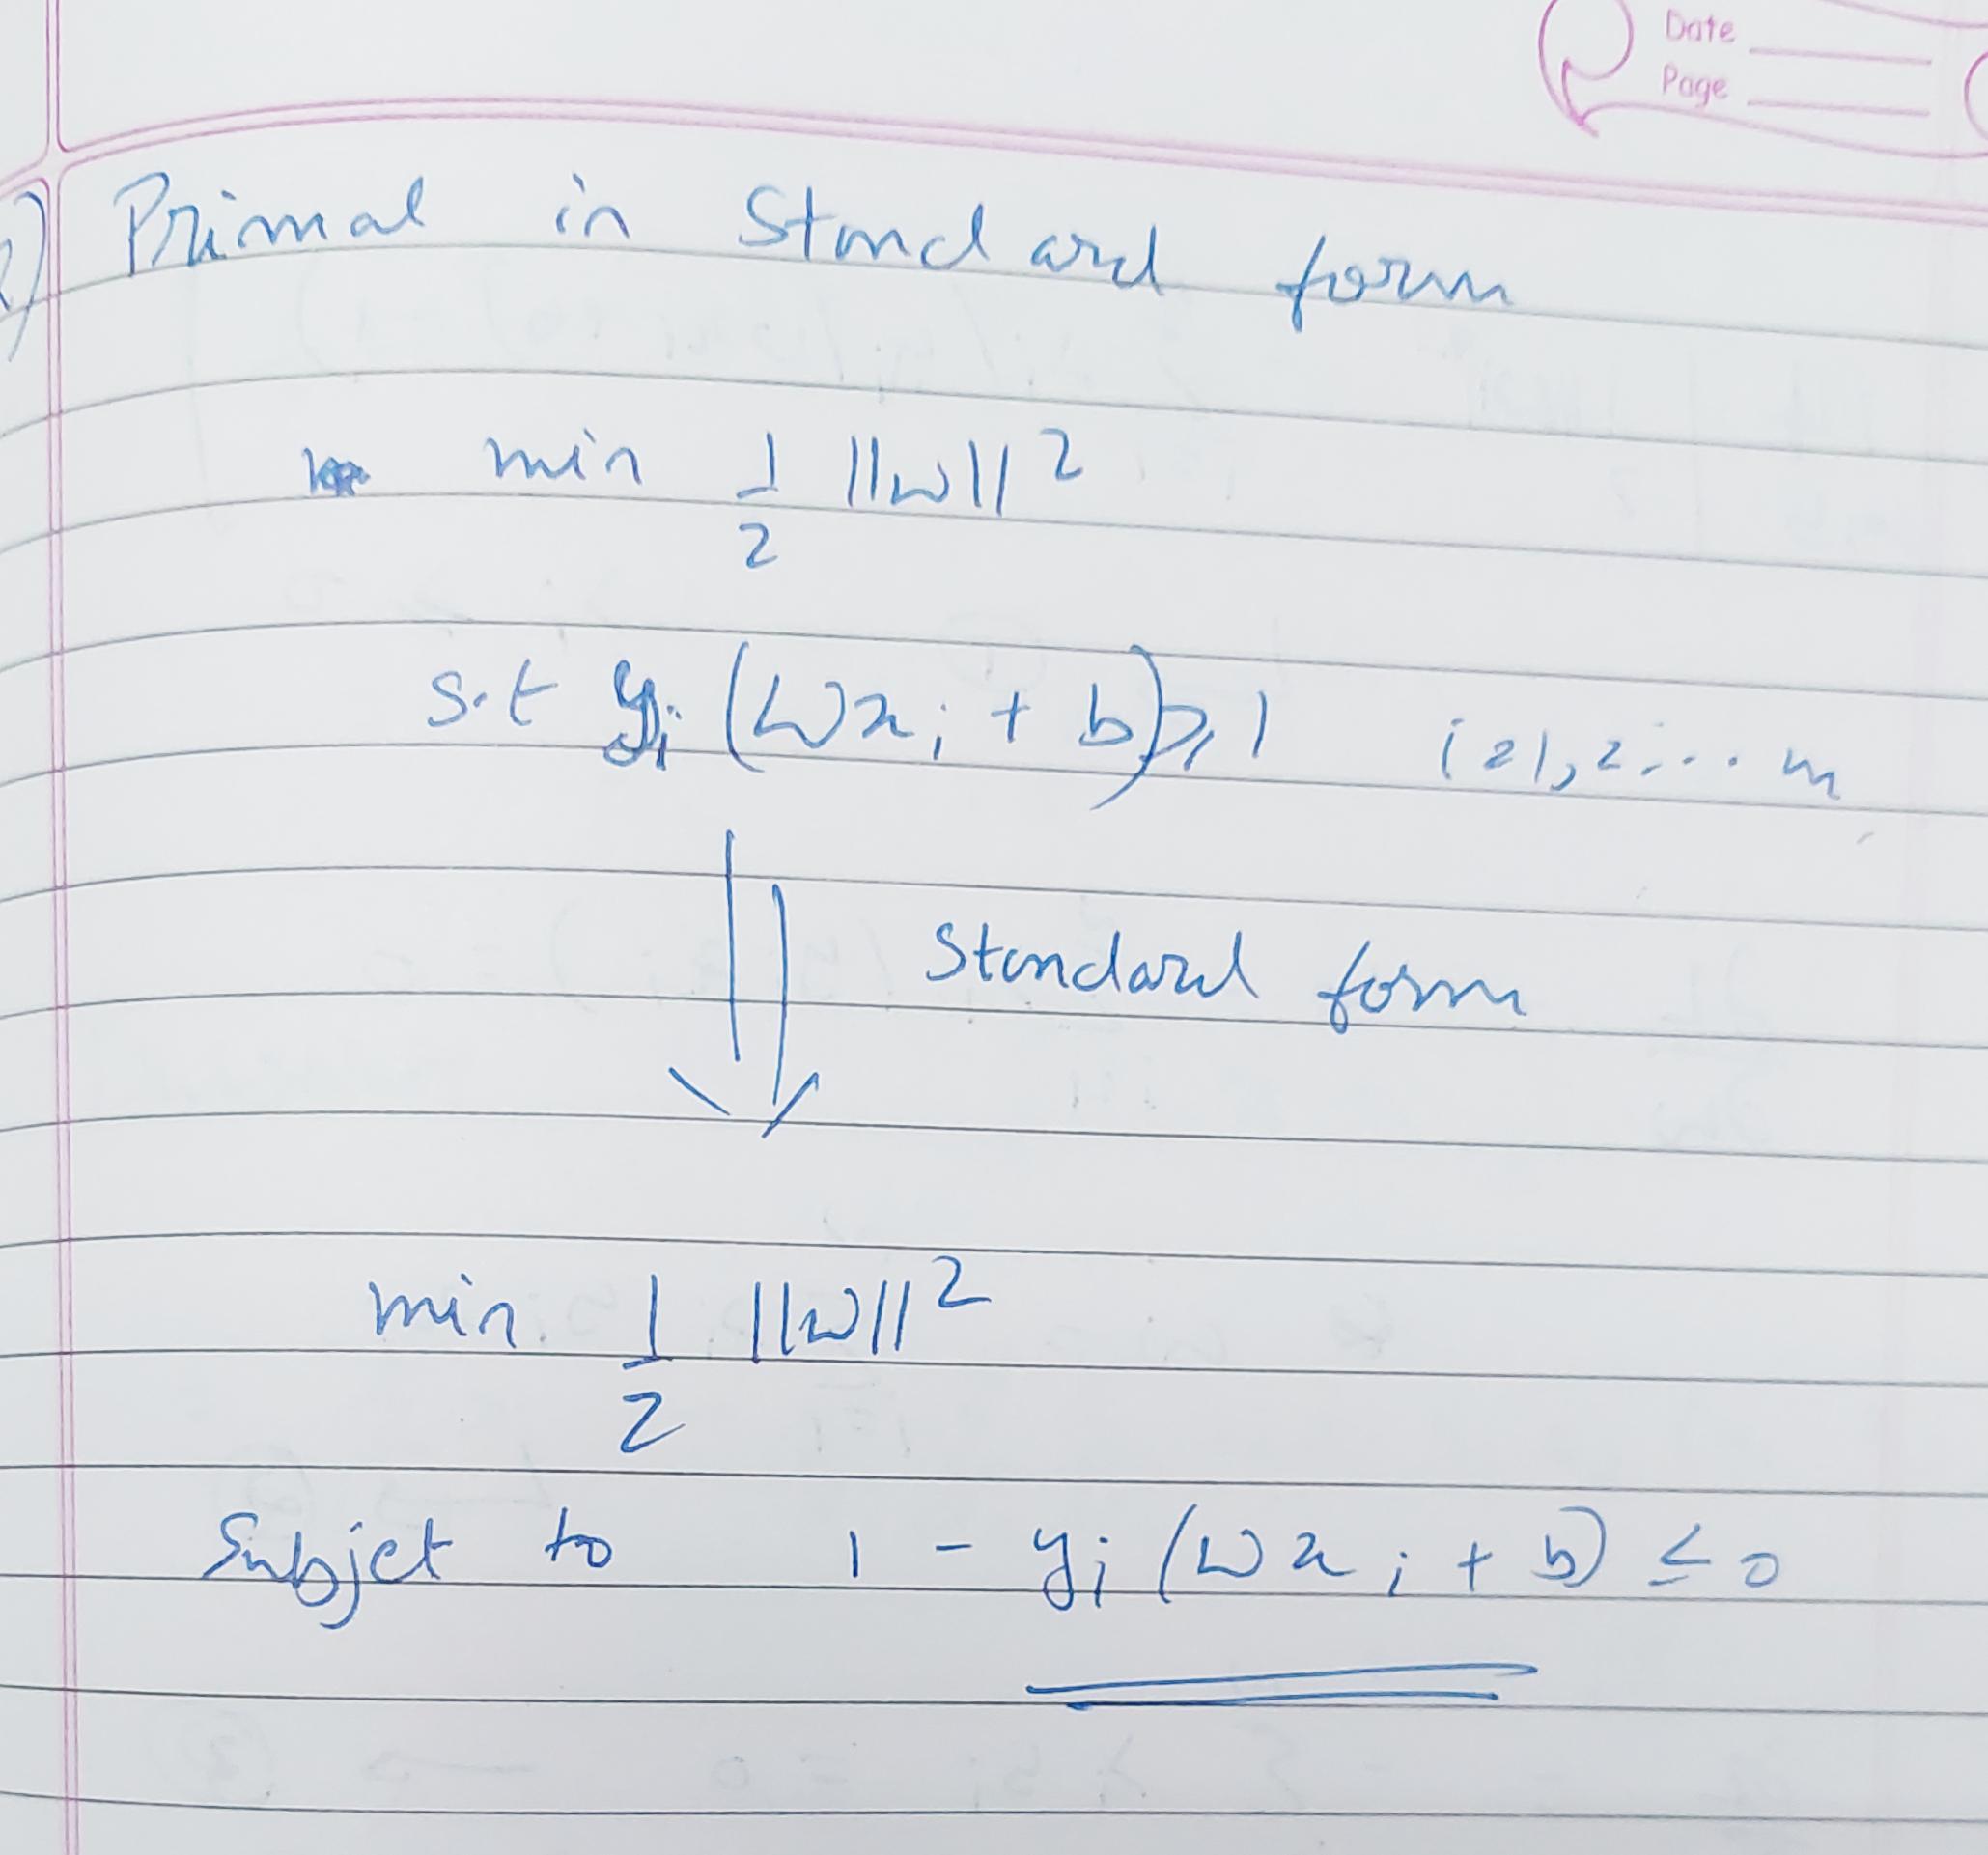 Date
Page
Primal in Standard form
min 1/2 ||w||²
s.t yi (wxi + b) ≥ 1 i=1,2,... m
Standard form
min 1/2 ||w||²
Subjct to 1 - yi (wxi + b) ≤ 0